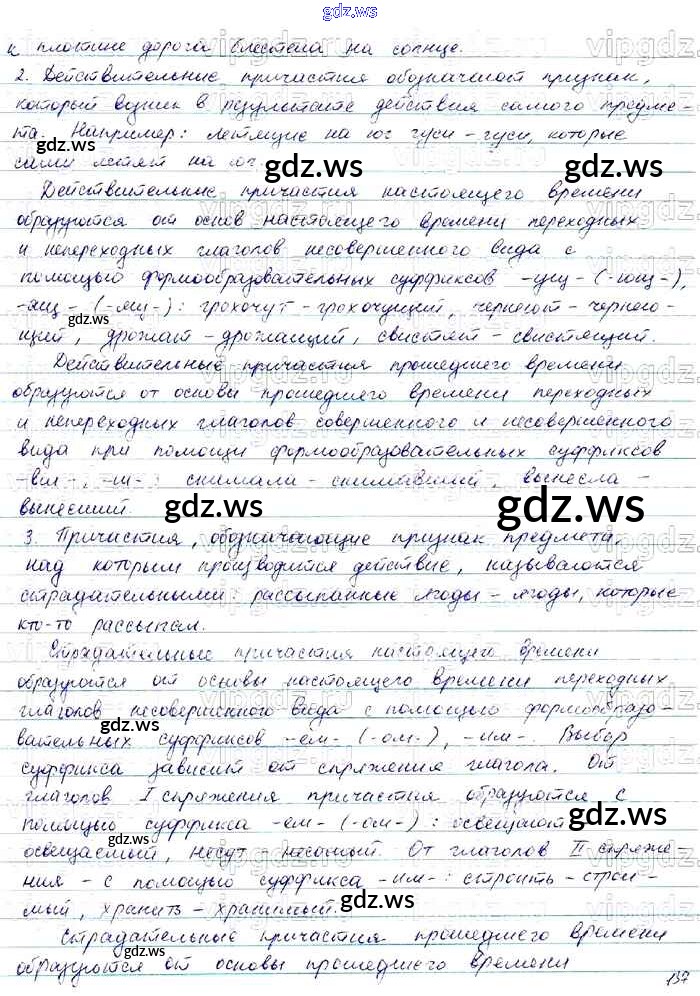 gdz.ws
к плотине дорога блестела на солнце.
2. Действительные причастия обозначают признак,
который возник в результате действия самого предме-
та. Например: летящие на юг гуси – гуси, которые
сами летят на юг
gdz.ws gdz.ws
Действительные причастия настоящего времени
образуются от основ настоящего времени переходных
и непереходных глаголов несовершенного вида с
помощью формообразовательных суффиксов -ущ- (-ющ-),
-ащ- (-ящ-): грохочут – грохочущий, чернеют – чернею-
gdz.ws
щий, дрожат – дрожащий, свистят – свистящий.
Действительные причастия прошедшего времени
образуются от основы прошедшего времени переходных
и непереходных глаголов совершенного и несовершенного
вида при помощи формообразовательных суффиксов
-вш-, -ш-: снимала – снимавший, вынесла –
вынесший.
gdz.ws gdz.ws
3. Причастия, обозначающие признак предмета,
над которым производится действие, называются
страдательными: рассыпанные ягоды – ягоды, которые
кто-то рассыпал.
Страдательные причастия настоящего времени
образуются от основы настоящего времени переходных
глаголов несовершенного вида с помощью формообразо-
вательных суффиксов -ем- (-ом-), -им-. Выбор
gdz.ws
суффикса зависит от спряжения глагола. От
глаголов I спряжения причастия образуются с
помощью суффикса -ем- (-ом-): освещают
gdz.ws
освещаемый, несут несомый. От глаголов II спряже-
ния – с помощью суффикса -им-: строить – строи-
мый, хранить – хранимый.
gdz.ws
Страдательные причастия прошедшего времени
образуются от основы прошедшего времени
gdz.ws
137